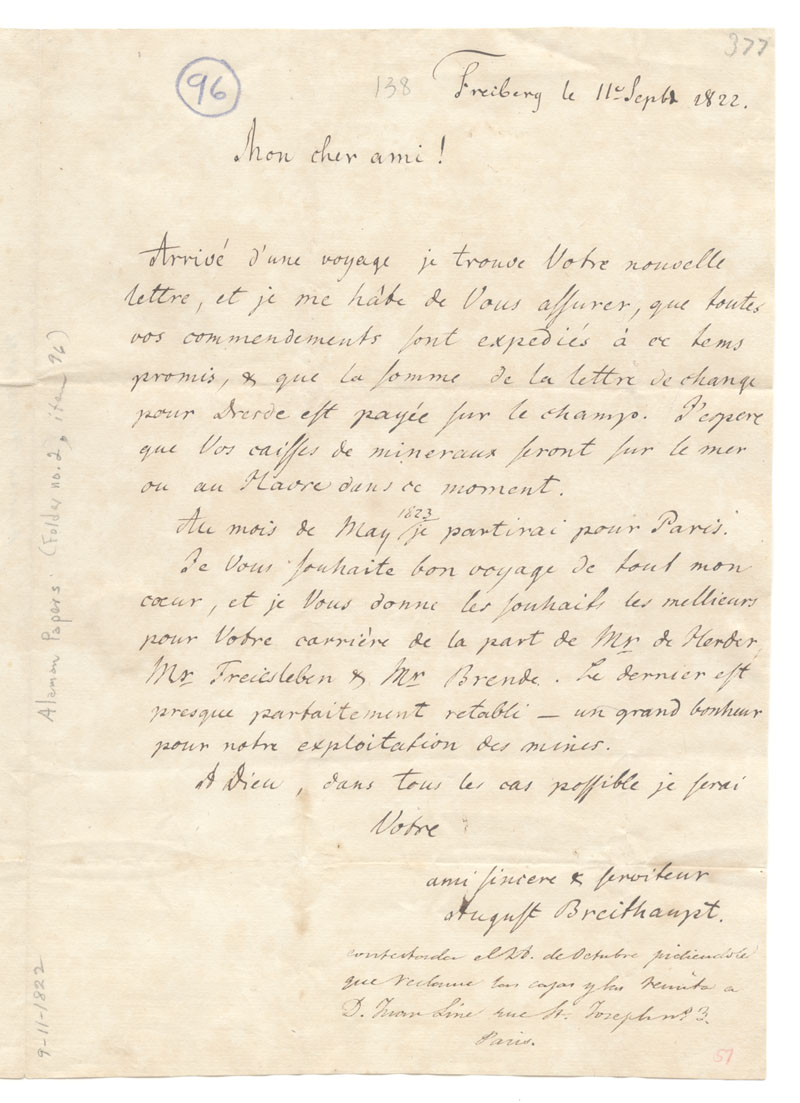 377
96
138
Freiberg le 11e Sept. 1822.
Mon cher ami !
Arrivé d'une voyage je trouve Votre nouvelle
lettre, et je me hâte de Vous assurer, que toutes
vos commendements sont expediés à ce tems
promis, & que la somme de la lettre de change
pour Dresde est payée sur le champ. J'espere
que Vos caisses de mineraux seront sur le mer
ou au Havre dans ce moment.
1823
Au mois de May je partirai pour Paris.
Je Vous souhaite bon voyage de tout mon
cœur, et je Vous donne les souhaits les mellieurs
pour Votre carrière de la part de Mr de Herder,
Mr Freiesleben & Mr Brende. Le dernier est
presque parfaitement retabli — un grand bonheur
pour notre exploitation des mines.
A Dieu, dans tous les cas possible je serai
Votre
ami sincere & serviteur
August Breithaupt.
contestada el 28. de Octubre pidiendole
que reclame las cajas y las remita a
D. Juan Line rue St. Joseph no 3.
Paris.
51
Alaman Papers (Folder no. 2, item 96)
9-11-1822